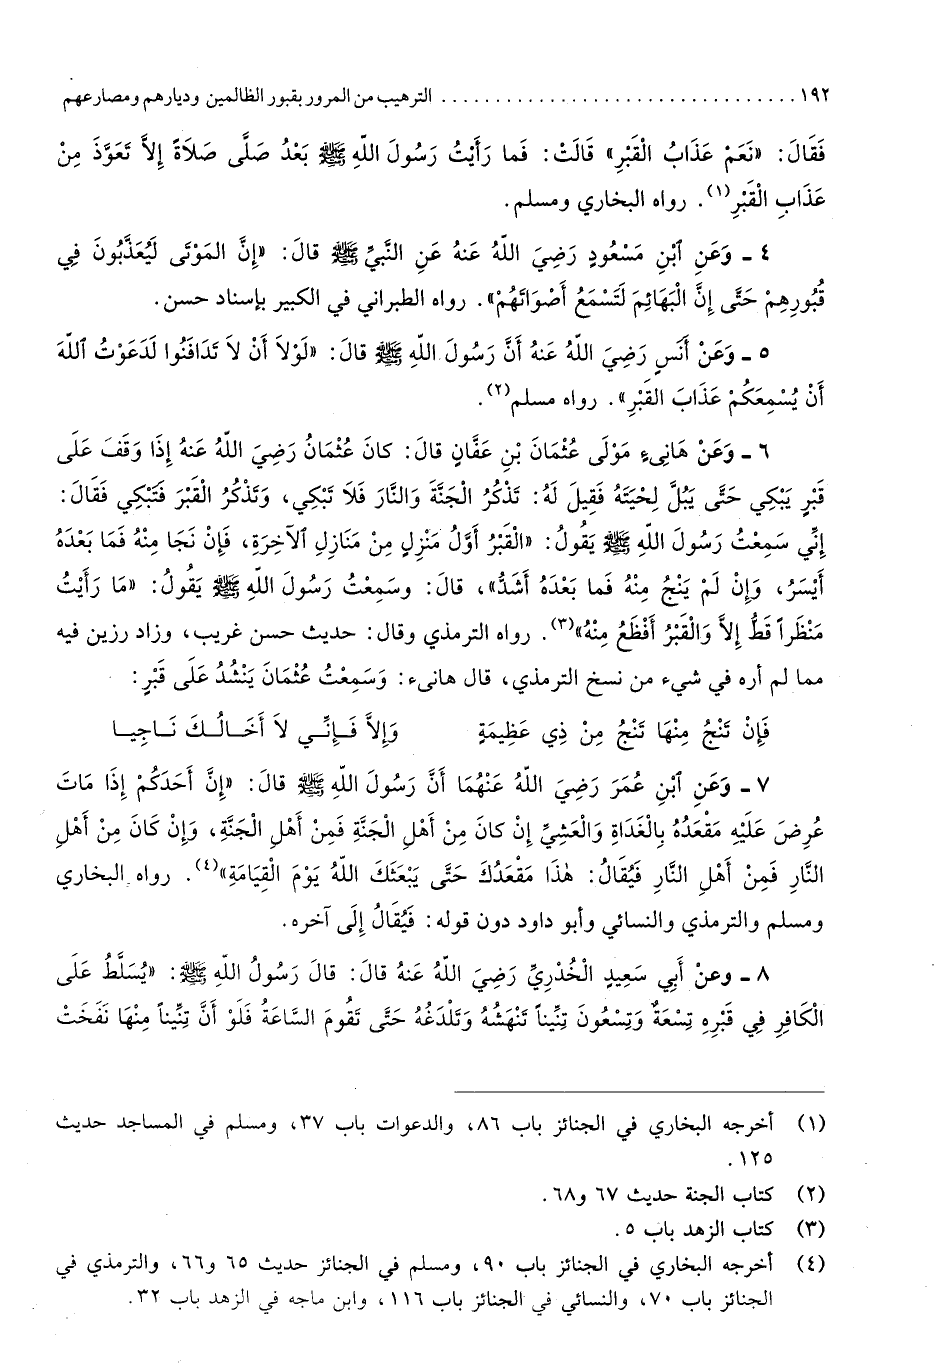 ١٩٢ ................................ الترهيب من المرور بقبور الظالمين وديارهم ومصارعهم
فَقَالَ: «نَعَمْ عَذَابُ الْقَبْرِ» قَالَتْ: فَما رَأَيْتُ رَسُولَ اللهِ ﷺ بَعْدُ صَلَّى صَلاَةً إِلاَّ تَعَوَّذَ مِنْ
عَذَابِ الْقَبْرِ(١). رواه البخاري ومسلم.
٤ ـ وَعَنِ ٱبْنِ مَسْعُودٍ رَضِيَ اللّهُ عَنهُ عَنِ النَّبِيِّ ﷺ قالَ: «إِنَّ المَوْتَى لَيُعَذَّبُونَ فِي
قُبُورِهِمْ حَتَّى إِنَّ الْبَهَائِمَ لَتَسْمَعُ أَصْوَاتَهُمْ». رواه الطبراني في الكبير بإسناد حسن.
٥ ـ وَعَنْ أَنَسٍ رَضِيَ اللّهُ عَنهُ أَنَّ رَسُولَ اللهِ ﷺ قالَ: «لَوْلاَ أَنْ لاَ تَدَافَنُوا لَدَعَوْتُ ٱللَّهَ
أَنْ يُسْمِعَكُمْ عَذَابَ القَبْرِ». رواه مسلم(٢).
٦ ـ وَعَنْ هَانِىءٍ مَوْلَى عُثْمَانَ بْنِ عَفَّانٍ قالَ: كانَ عُثْمَانُ رَضِيَ اللّهُ عَنهُ إِذَا وَقَفَ عَلَى
قَبْرٍ يَبْكِي حَتَّى يَبُلَّ لِحْيَتَهُ فَقِيلَ لَهُ: تَذْكُرُ الْجَنَّةَ وَالنَّارَ فَلاَ تَبْكِي، وَتَذْكُرُ الْقَبْرَ فَتَبْكِي فَقَالَ:
إِنِّي سَمِعْتُ رَسُولَ اللهِ ﷺ يَقُولُ: «الْقَبْرُ أَوَّلُ مَنْزِلٍ مِنْ مَنَازِلِ ٱلآخِرَةِ، فَإِنْ نَجَا مِنْهُ فَمَا بَعْدَهُ
أَيْسَرُ، وَإِنْ لَمْ يَنْجُ مِنْهُ فَما بَعْدَهُ أَشَدُّ»، قالَ: وسَمِعْتُ رَسُولَ اللهِ ﷺ يَقُولُ: «مَا رَأَيْتُ
مَنْظَراً قَطُّ إِلاَّ وَالْقَبْرُ أَفْظَعُ مِنْهُ»(٣). رواه الترمذي وقال: حديث حسن غريب، وزاد رزين فيه
مما لم أره في شيء من نسخ الترمذي، قال هانىء: وَسَمِعْتُ عُثْمَانَ يَنْشُدُ عَلَى قَبْرٍ:
فَإِنْ تَنْجُ مِنْهَا تَنْجُ مِنْ ذِي عَظِيمَةٍ وَإِلاَّ فَـإِنِّـي لاَ أَخَـالُـكَ نَـاجِيـا
٧ ـ وَعَنِ ٱبْنِ عُمَرَ رَضِيَ اللّهُ عَنْهُمَا أَنَّ رَسُولَ اللهِ ﷺ قالَ: «إِنَّ أَحَدَكُمْ إِذَا مَاتَ
عُرِضَ عَلَيْهِ مَقْعَدُهُ بِالْغَدَاةِ وَالْعَشِيِّ إِنْ كانَ مِنْ أَهْلِ الْجَنَّةِ فَمِنْ أَهْلِ الْجَنَّةِ، وَإِنْ كَانَ مِنْ أَهْلِ
النَّارِ فَمِنْ أَهْلِ النَّارِ فَيُقَالُ: هٰذَا مَقْعَدُكَ حَتَّى يَبْعَثَكَ اللّهُ يَوْمَ الْقِيَامَةِ»(٤). رواه البخاري
ومسلم والترمذي والنسائي وأبو داود دون قوله: فَيُقَالُ إِلَى آخره.
٨ ـ وعنْ أَبِي سَعِيدٍ الْخُدْرِيِّ رَضِيَ اللّهُ عَنهُ قالَ: قالَ رَسُولُ اللهِ ﷺ: «يُسَلَّطُ عَلَى
الْكَافِرِ فِي قَبْرِهِ تِسْعَةٌ وَتِسْعُونَ تِنِّيناً تَنْهَشُهُ وَتَلْدَغُهُ حَتَّى تَقُومَ السَّاعَةُ فَلَوْ أَنَّ تِنِّيناً مِنْهَا نَفَخَتْ
(١) أخرجه البخاري في الجنائز باب ٨٦، والدعوات باب ٣٧، ومسلم في المساجد حديث
١٢٥.
(٢) كتاب الجنة حديث ٦٧ و٦٨.
(٣) كتاب الزهد باب ٥.
(٤) أخرجه البخاري في الجنائز باب ٩٠، ومسلم في الجنائز حديث ٦٥ و٦٦، والترمذي في
الجنائز باب ٧٠، والنسائي في الجنائز باب ١١٦، وابن ماجه في الزهد باب ٣٢.